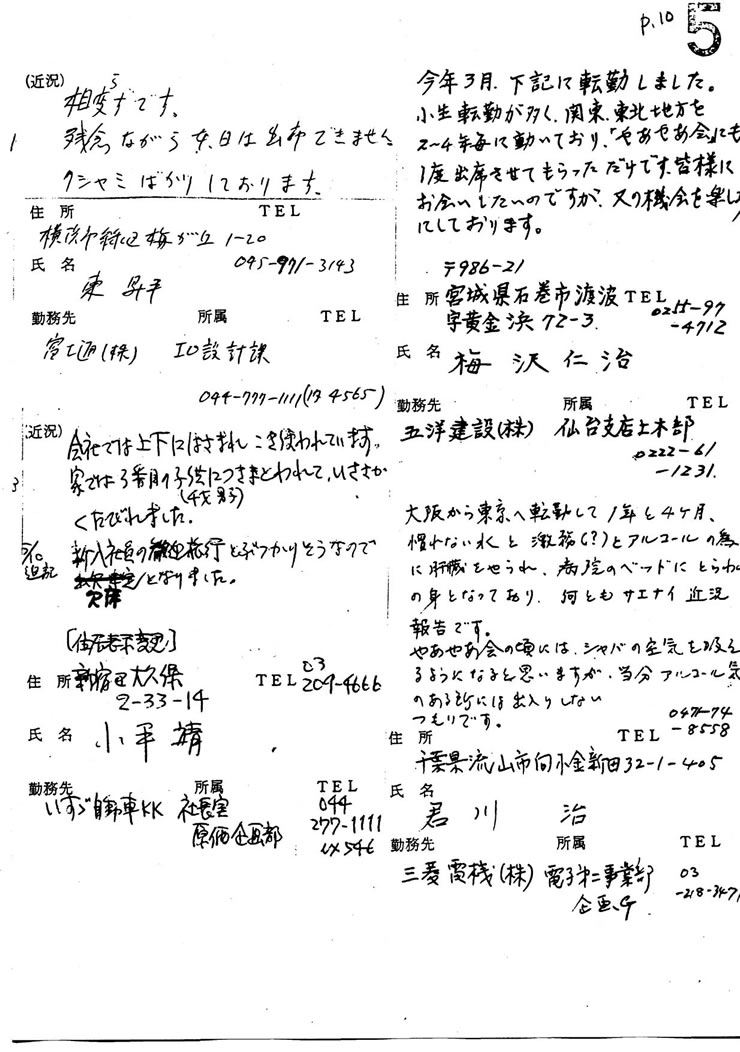 p.10 5
(近況)
相変らずです。
1
残念ながら 日は出席できません
クシャミばかりしております。
住所 TEL
横浜市緑区梅が丘 1-20
氏名 045-971-3143
東 昇平
勤務先 所属 TEL
富士通(株) IO設計課
044-777-1111(内4565)
(近況)
3
会社では上下にはさまれ こき使われています。
家では3番目の子供につきまとわれて、いささか
くたびれました。
追記
新入社員の 旅行とぶつかりそうなので
欠席 となりました。
住所 新宿区大久保 TEL 03
2-33-14 209-4666
氏名 小平 靖
勤務先 所属 TEL
いすゞ自動車KK 社長室 044
原価企画部 277-1111
546
今年3月、下記に転勤しました。
小生転勤が多く、関東、東北地方を
2~4年毎に動いており、「やあやあ会」にも
1度出席させてもらっただけです。皆様に
お会いしたいのですが、又の機会を楽し
にしております。
〒986-21
住所 宮城県石巻市渡波 TEL
字黄金浜 72-3 0255-97
-4712
氏名 梅沢仁治
勤務先 所属 TEL
五洋建設(株) 仙台支店土木部
0222-61
-1231
大阪から東京へ転勤して1年と4ケ月、
慣れない水と激務(?)とアルコールの為
に肝臓をやられ、病院のベッドにとらわ
の身となっており、何ともサエナイ近況
報告です。
やあやあ会の頃には、シャバの空気を吸え
るようになると思いますが、当分アルコール気
のある所には出入りしない
つもりです。 0471-74
住所 TEL -8558
千葉県流山市向小金新田32-1-405
氏名
君川 治
勤務先 所属 TEL
三菱電機(株) 電子第二事業部 03
企画G -218-3471